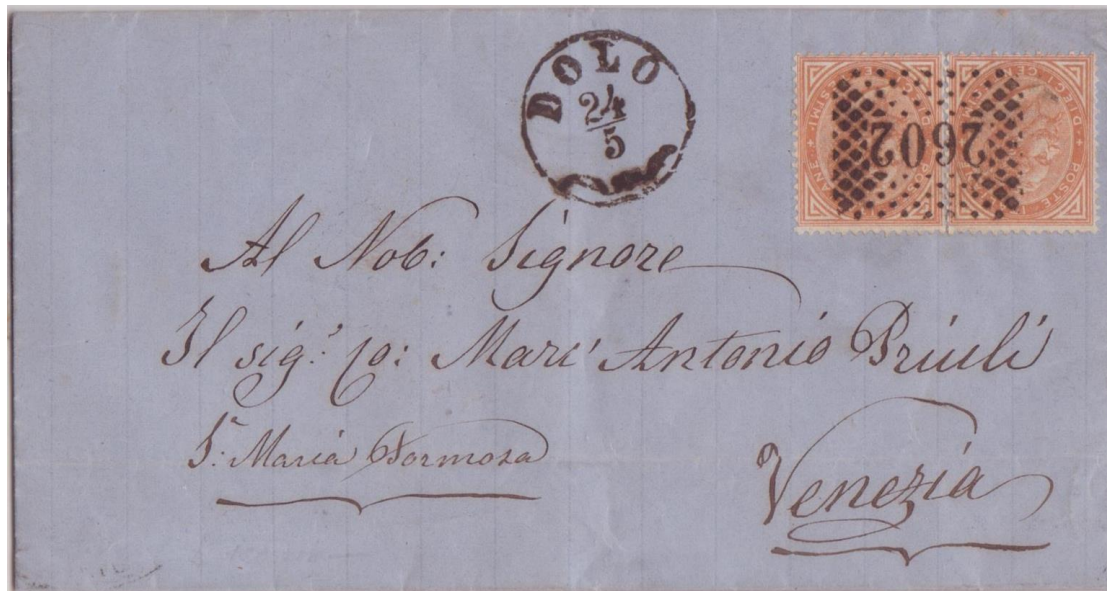 DOLO
24
5
2602
DIECI CE
POSTE
Al Nob: Signore
Il sig.r Co: Marc' Antonio Priuli
S.a Maria Formosa
Venezia